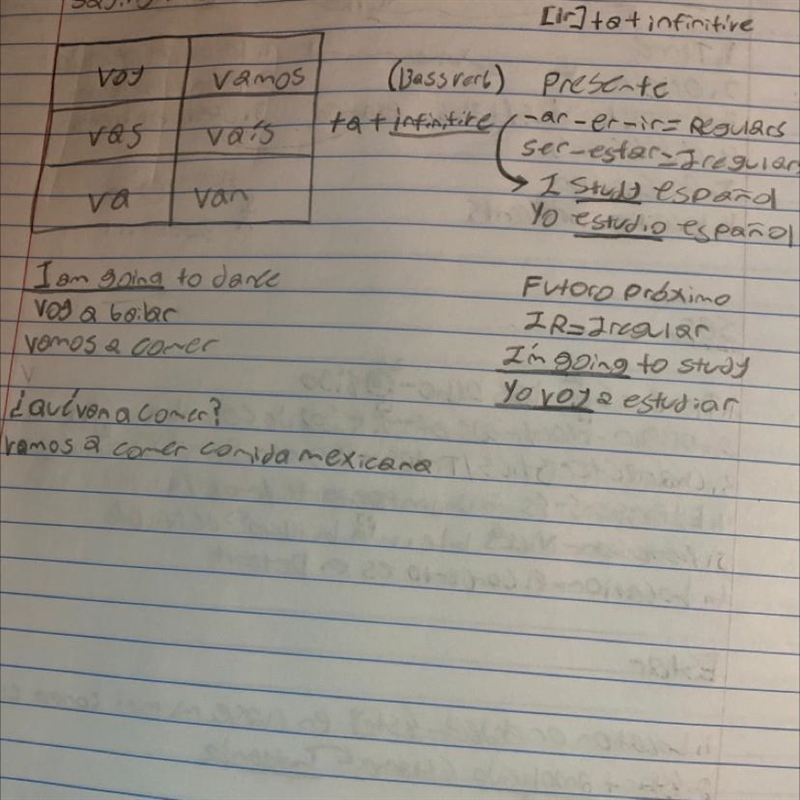 [ir] + a + infinitive
voy vamos
vas vais
va van
(Bass verb)
+ a + infinitive
Presente
-ar-er-ir= Regulars
ser-estar= Iregular
I study español
Yo estudio español
I am going to dance
voy a bailar
vamos a comer
¿qué van a comer?
vamos a comer comida mexicana
Futoro próximo
IR= Iregular
I'm going to study
Yo voy a estudiar